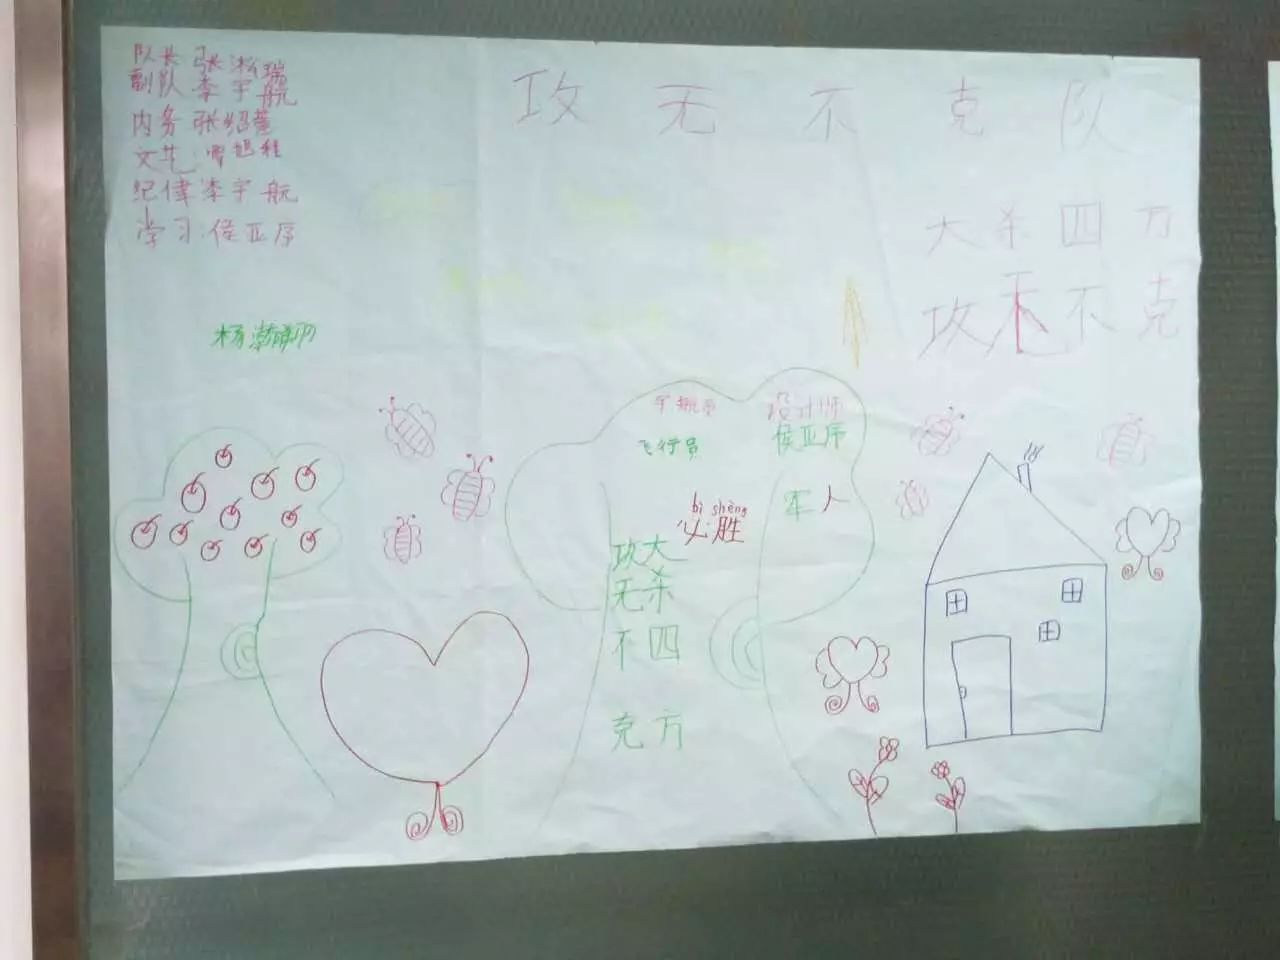 队长 张淞瑞
副队 李宇航
内务 张绍萱
文艺
纪偉 李宇航
学习:侯亚序
攻无不克队
大杀四方
攻无不克
设计师
侯亚序
飞行员
军人
bì shèng
必胜
大杀四方
攻无不克